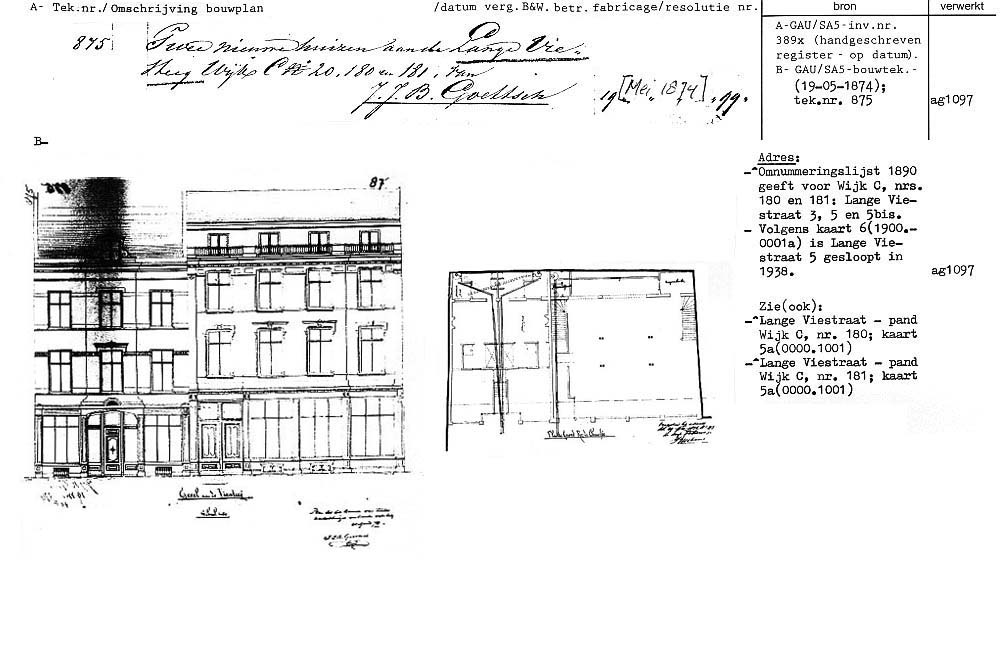 A- Tek.nr./Omschrijving bouwplan /datum verg.B&W. betr. fabricage/resolutie nr. bron verwerkt
875 Twee nieuwe huizen aan de Lange Vie-
steeg Wijk C No 20, 180 en 181, van
J. J. B. Goettsch 19 [Mei, 1874] 99.
A-GAU/SA5-inv.nr.
389x (handgeschreven
register - op datum).
B- GAU/SA5-bouwtek.-
(19-05-1874);
tek.nr. 875 ag1097
B-
87
Adres:
-^Omnummeringslijst 1890
geeft voor Wijk C, nrs.
180 en 181: Lange Vie-
straat 3, 5 en 5bis.
- Volgens kaart 6(1900.-
0001a) is Lange Vie-
straat 5 gesloopt in
1938. ag1097
Zie(ook):
-^Lange Viestraat - pand
Wijk C, nr. 180; kaart
5a(0000.1001)
-^Lange Viestraat - pand
Wijk C, nr. 181; kaart
5a(0000.1001)